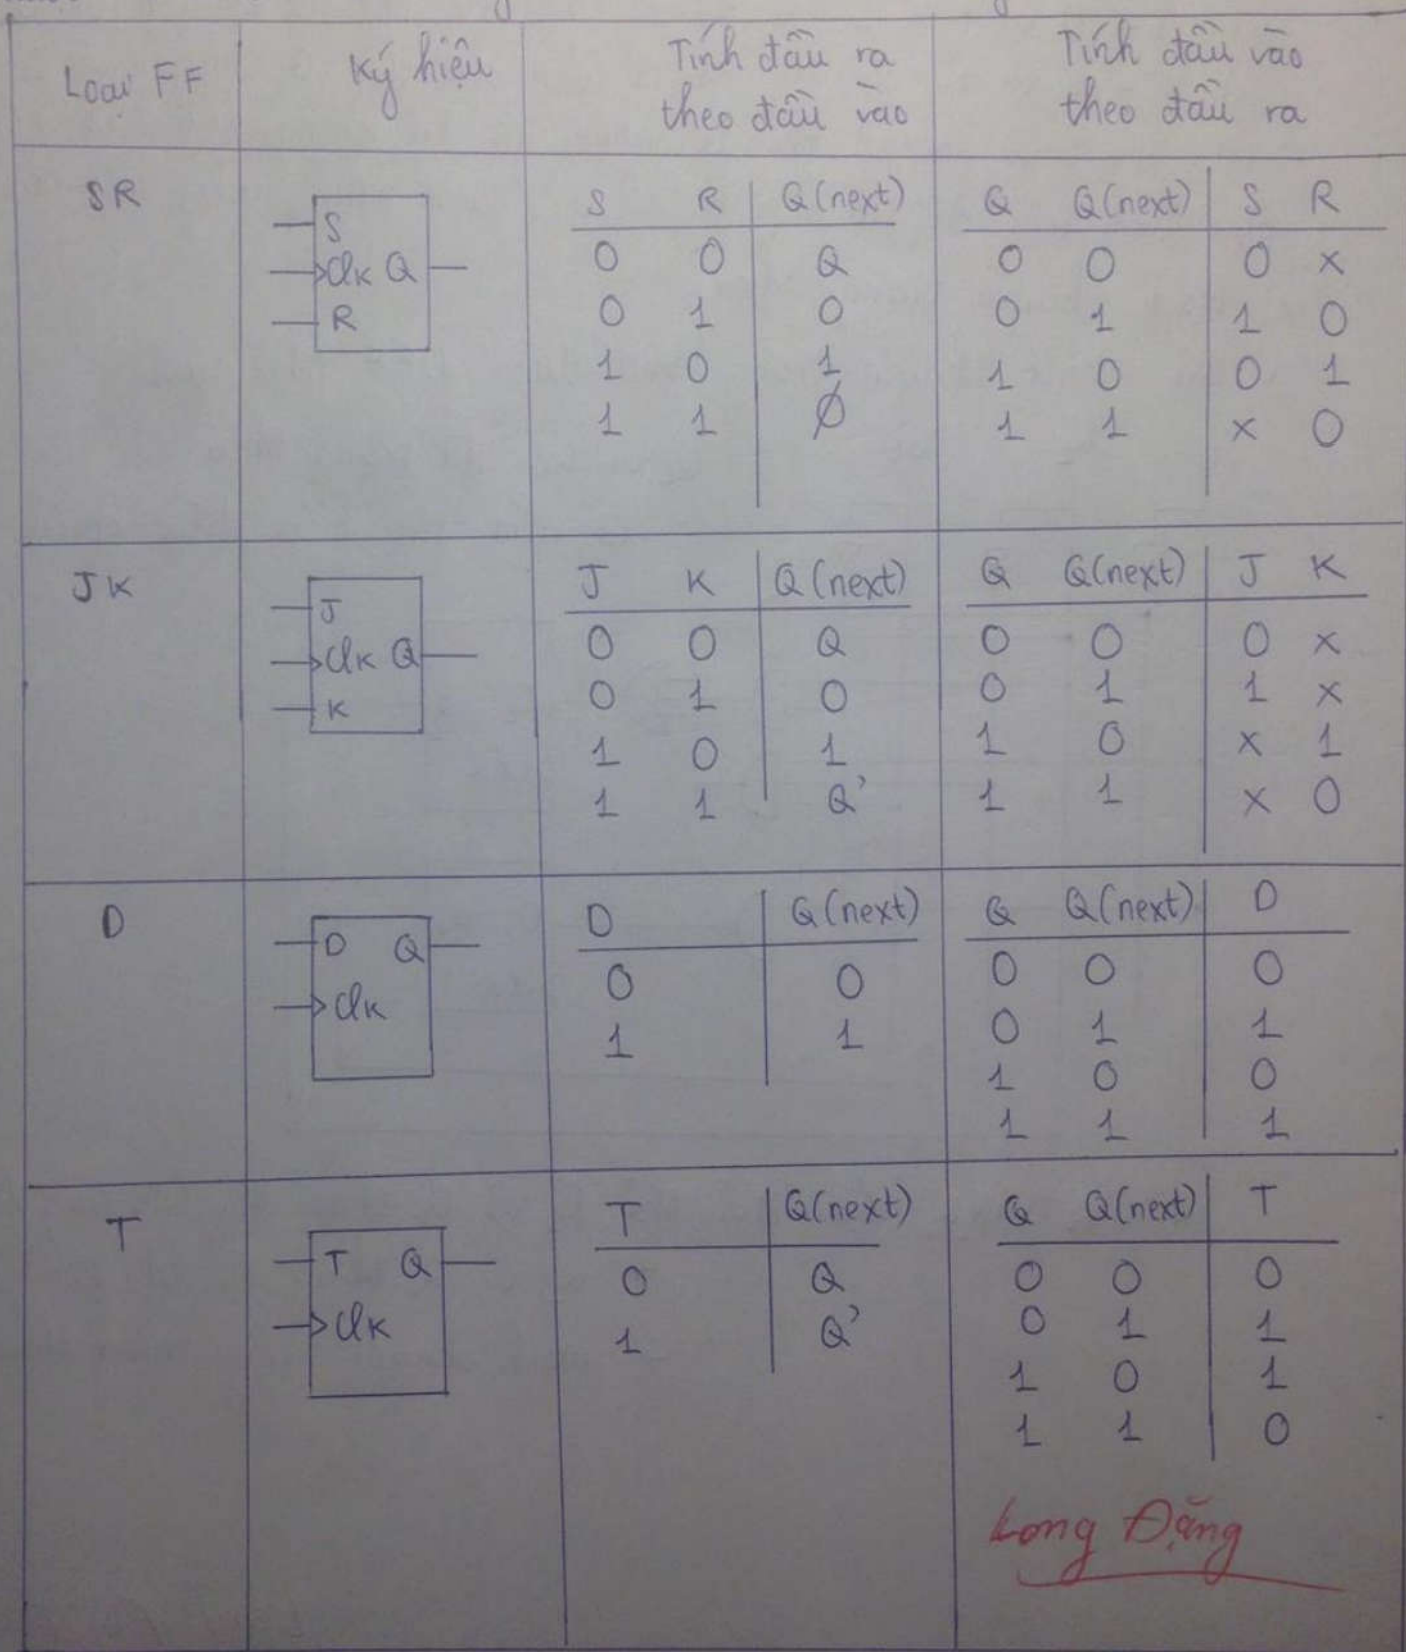 Loại FF
Ký hiệu
Tính đầu ra
theo đầu vào
Tính đầu vào
theo đầu ra
SR
S
Clk Q
R
S R Q(next)
0 0 Q
0 1 0
1 0 1
1 1 Ø
Q Q(next) S R
0 0 0 x
0 1 1 0
1 0 0 1
1 1 x 0
JK
J
Clk Q
K
J K Q(next)
0 0 Q
0 1 0
1 0 1
1 1 Q'
Q Q(next) J K
0 0 0 x
0 1 1 x
1 0 x 1
1 1 x 0
D
D Q
Clk
D Q(next)
0 0
1 1
Q Q(next) D
0 0 0
0 1 1
1 0 0
1 1 1
T
T Q
Clk
T Q(next)
0 Q
1 Q'
Q Q(next) T
0 0 0
0 1 1
1 0 1
1 1 0
Long Đặng